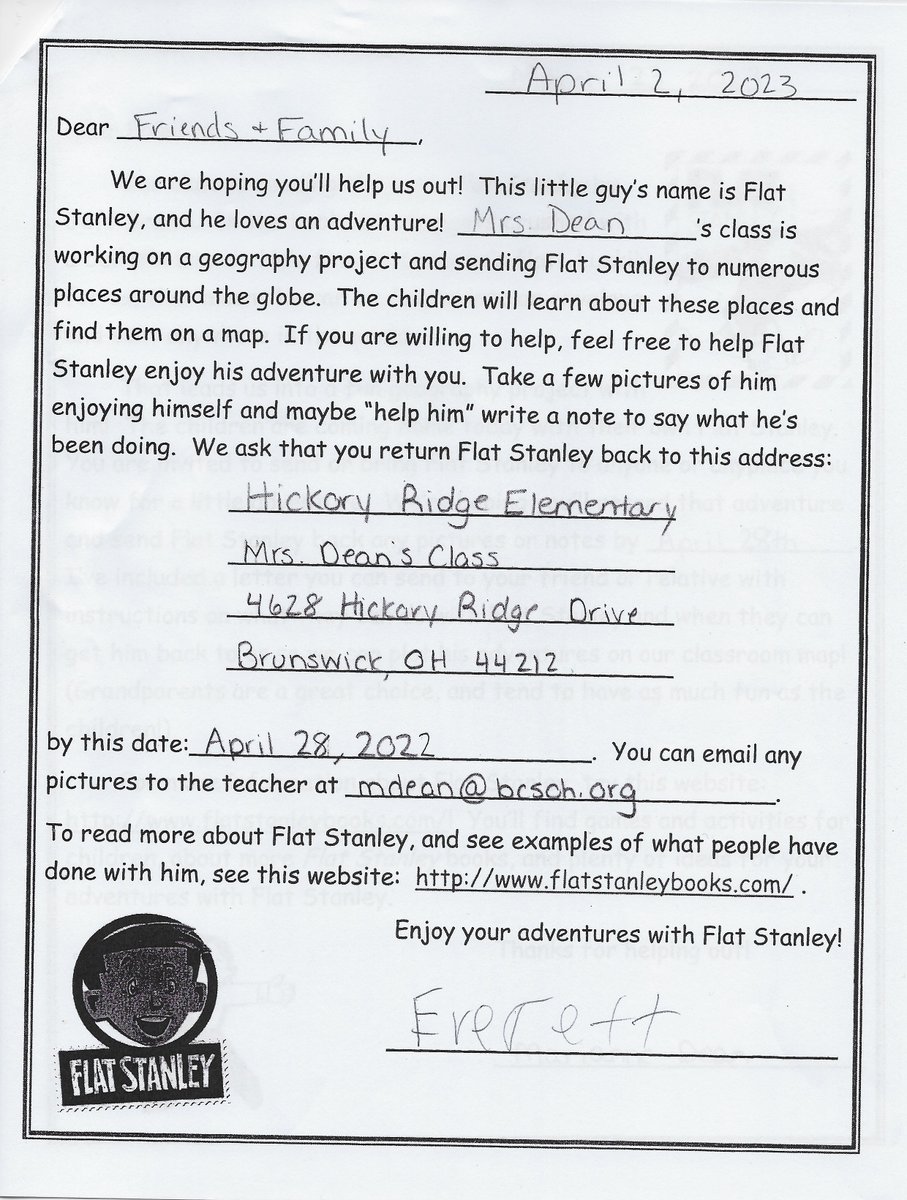 April 2, 2023
Dear Friends + Family,
We are hoping you'll help us out! This little guy's name is Flat
Stanley, and he loves an adventure! Mrs. Dean's class is
working on a geography project and sending Flat Stanley to numerous
places around the globe. The children will learn about these places and
find them on a map. If you are willing to help, feel free to help Flat
Stanley enjoy his adventure with you. Take a few pictures of him
enjoying himself and maybe "help him" write a note to say what he's
been doing. We ask that you return Flat Stanley back to this address:
Hickory Ridge Elementary
Mrs. Dean's Class
4628 Hickory Ridge Drive
Brunswick, OH 44212
by this date: April 28, 2022. You can email any
pictures to the teacher at mdean@bcsoh.org.
To read more about Flat Stanley, and see examples of what people have
done with him, see this website: http://www.flatstanleybooks.com/ .
Enjoy your adventures with Flat Stanley!
Everett
FLAT STANLEY